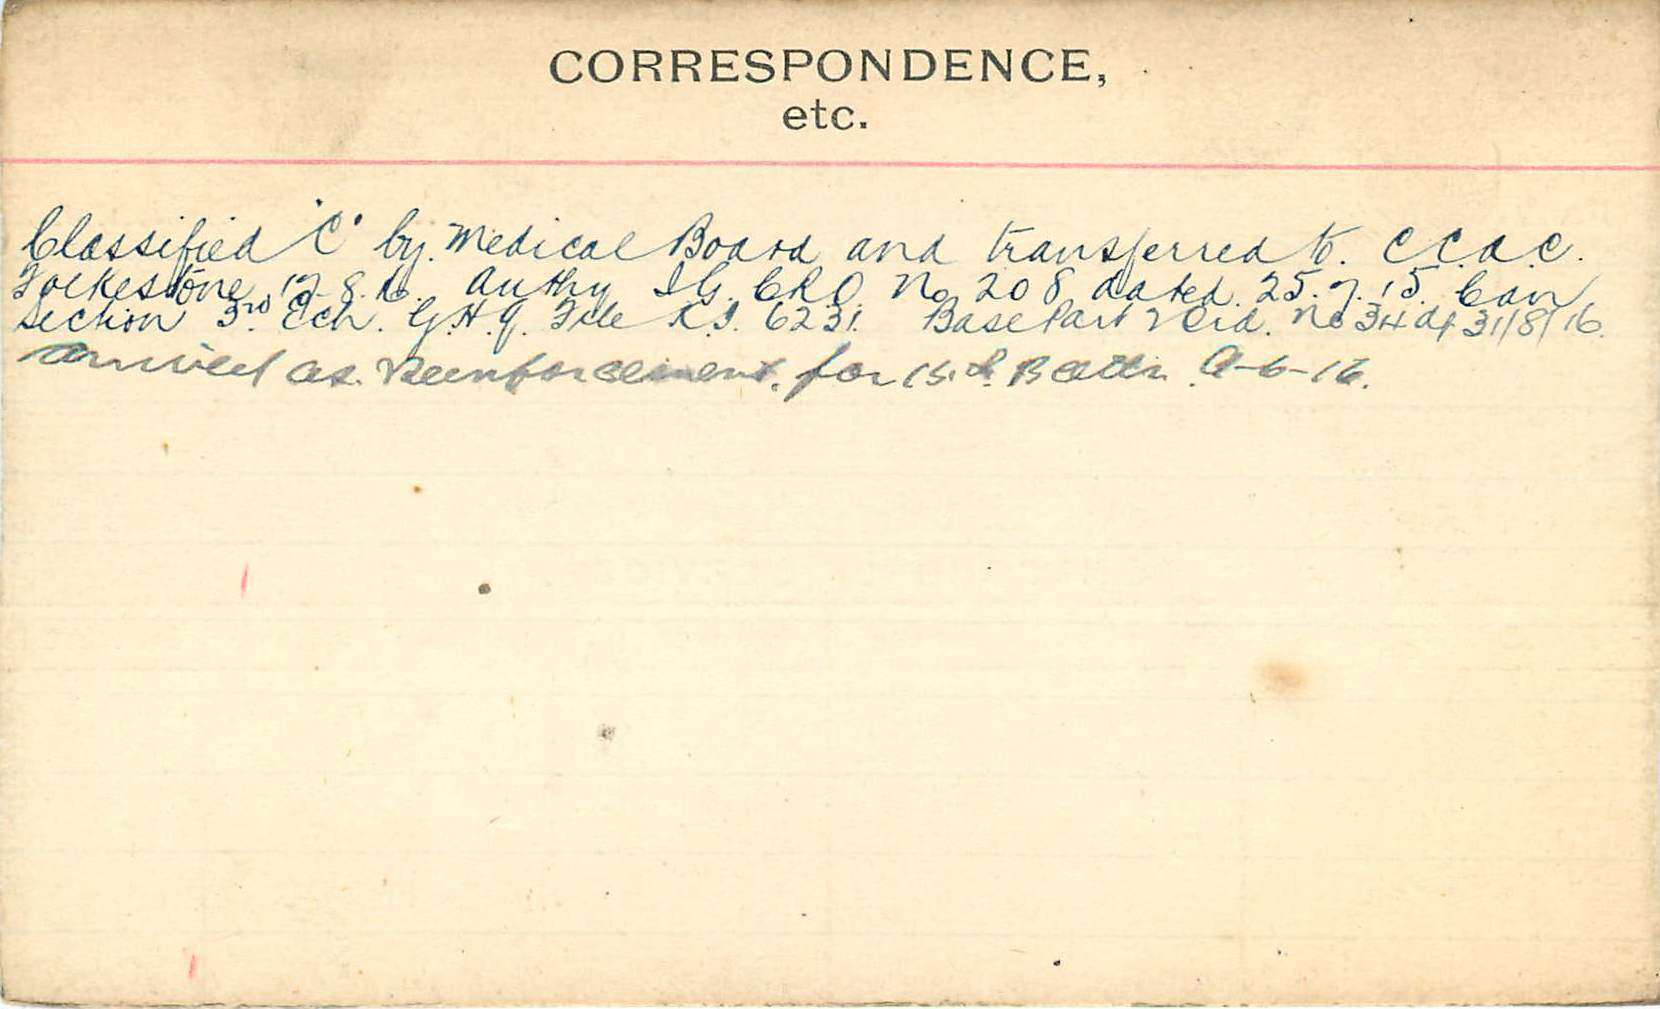 CORRESPONDENCE,
etc.
Classified "C" by. Medical Board and transferred to. C.C.A.C.
Folkestone 12.8.16. Authy I.G. C.R.O. No 208 dated. 25.7.15. Can
Section 3rd Ech. G.H.Q. File K.I. 6231. Base Part Ord. No 34 d/ 31/8/16.
arrived as. Reenforcement. for Battn. 9-6-16.